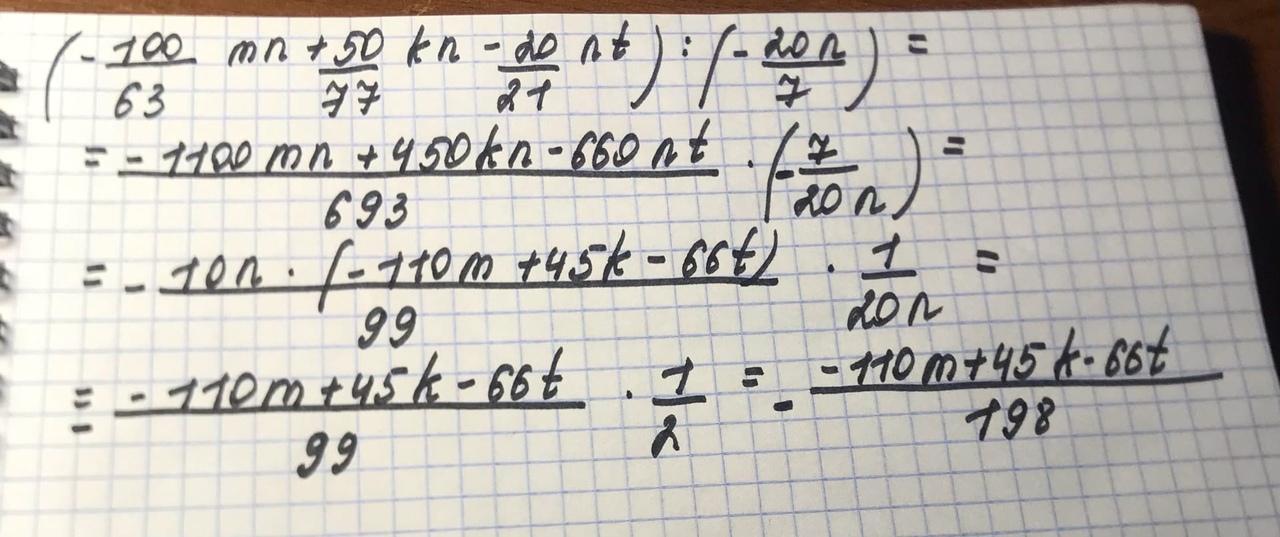 (-100/63 mn + 50/77 kn - 20/21 nt) : (-20n/7) =
= -1100mn + 450kn - 660nt/693 · (-7/20n) =
= - 10n · (-110m + 45k - 66t)/99 · 1/20n =
= - -110m + 45k - 66t/99 · 1/2 = - -110m + 45k - 66t/198